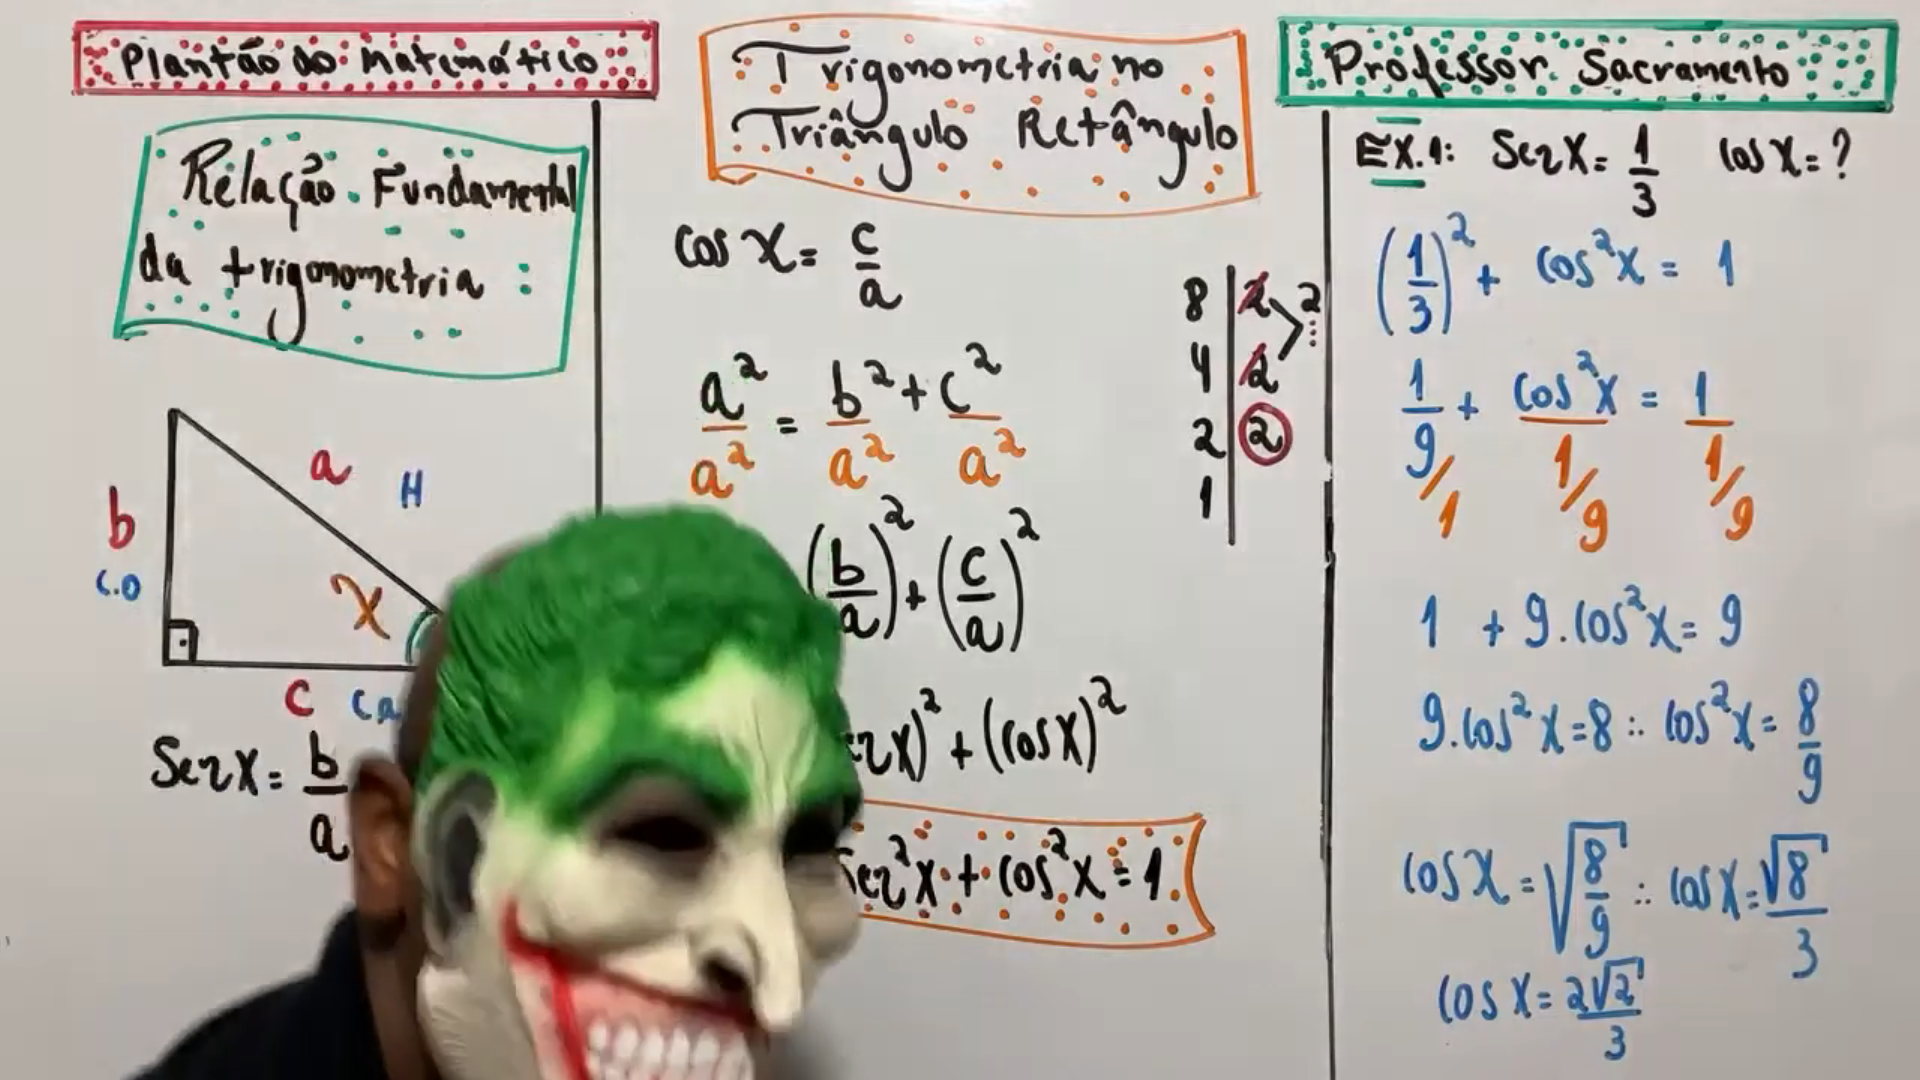 Plantão do Matemático
Relação Fundamental
da trigonometria:
a H
b
C.O
x
c CA
Sen x = b/a
Trigonometria no
Triângulo Retângulo
cos x = c/a
a²/a² = b²/a² + c²/a²
(b/a)² + (c/a)²
x)² + (cos x)²
Sen²x + cos²x = 1
8 2 2
4 2
2 2
1
Professor Sacramento
EX.1: Sen x = 1/3 cos x = ?
(1/3)² + cos²x = 1
1/9 + cos²x/1 = 1/1
/1 /9 /9
1 + 9.cos²x = 9
9.cos²x = 8 ∴ cos²x = 8/9
cos x = √(8/9) ∴ cos x = √8/3
cos x = 2√2/3